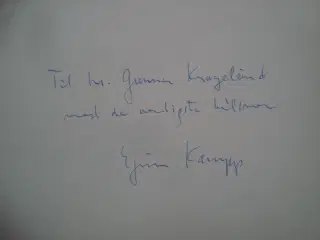 Til hr. Gunnar Kragelund
med de venligste hilsner
Kampp